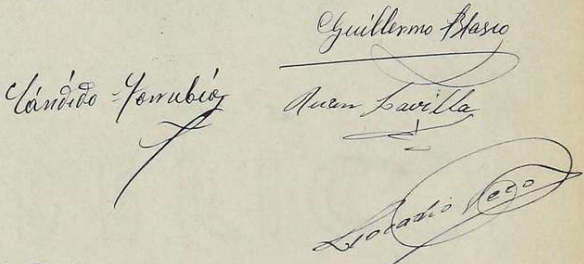 Guillermo Blasco
Cándido Torrubia
Juan Lavilla
Leocadio